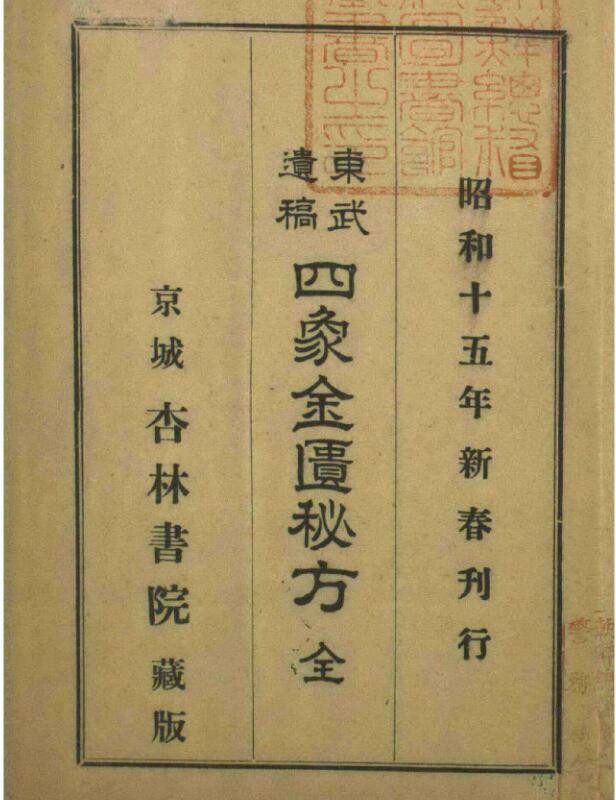 昭和十五年新春刊行
東武
遺稿
四象金匱秘方 全
京城 杏林書院 藏版